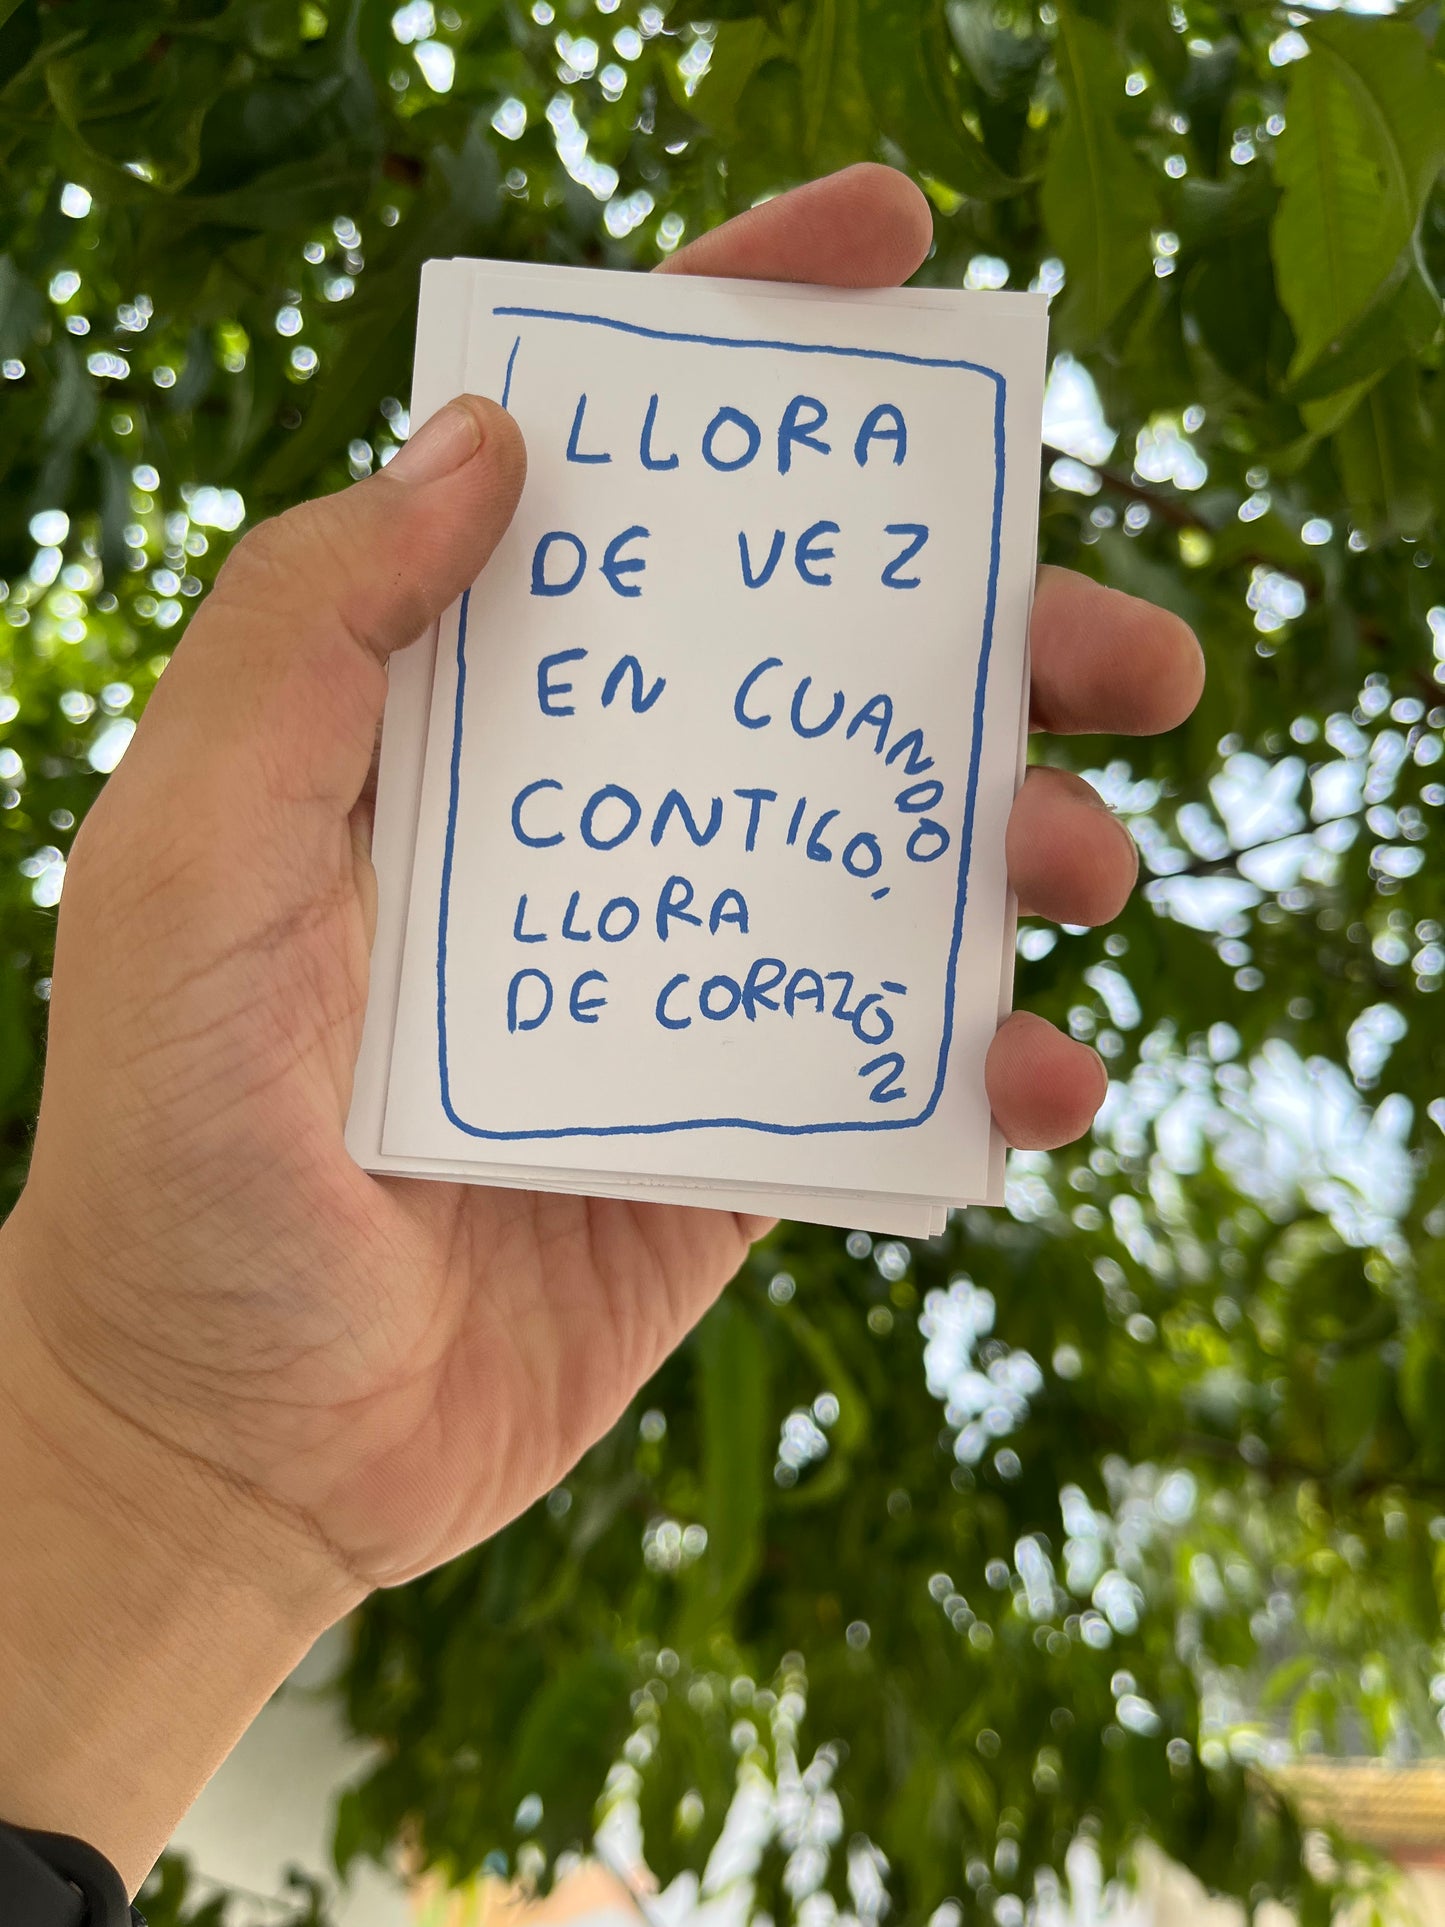 LLORA
DE VEZ
EN CUANDO
CONTIGO,
LLORA
DE CORAZÓN